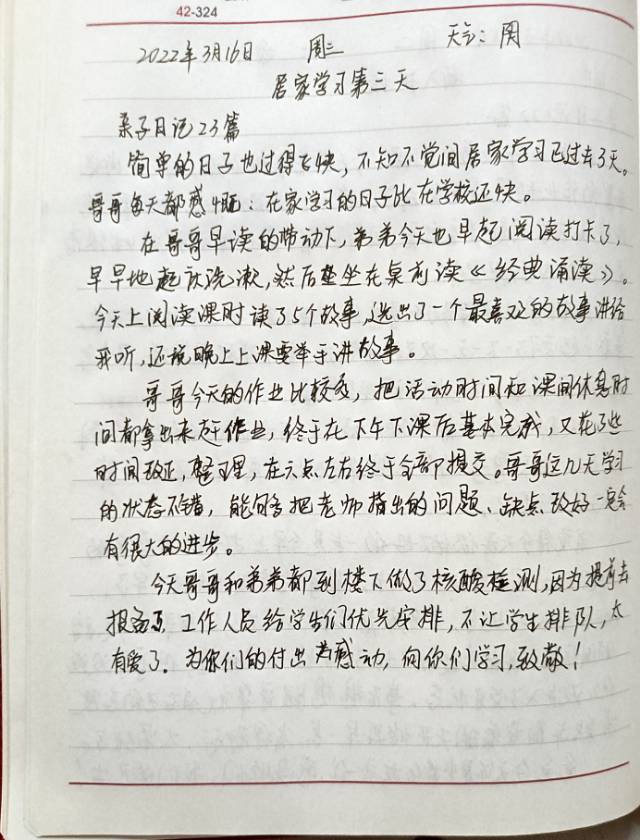 42-324
2022年3月16日 周三 天气：阴
居家学习第三天
亲子日记23篇
简单的日子也过得飞快，不知不觉间居家学习已过去了3天。
哥哥每天都感慨：在家学习的日子比在学校还快。
在哥哥早读的带动下，弟弟今天也早起阅读打卡了，
早早地起床洗漱，然后端坐在桌前读《经典诵读》。
今天上阅读课时读了5个故事，选出了一个最喜欢的故事讲给
我听，还说晚上上课要举手讲故事。
哥哥今天的作业比较多，把活动时间和课间休息时
间都拿出来赶作业，终于在下午下课后基本完成，又花了些
时间改正，整理，在六点左右终于全部提交。哥哥这几天学习
的状态不错，能够把老师指出的问题、缺点改好一定会
有很大的进步。
今天哥哥和弟弟都到楼下做了核酸检测，因为提前去
报备了，工作人员给学生们优先安排，不让学生排队，太
有爱了。为你们的付出而感动，向你们学习，致敬！